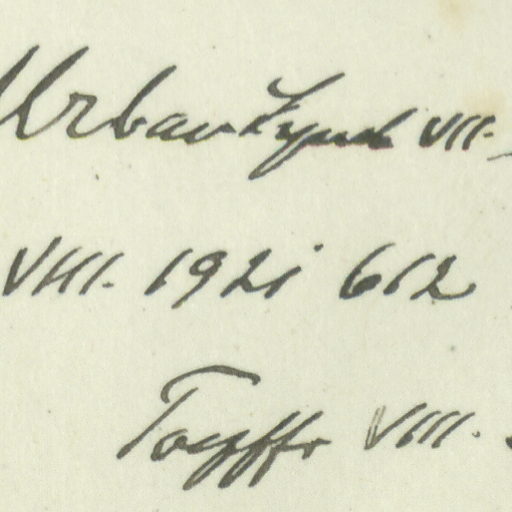 Urban Zsynd VII.
VIII. 1921 612
Toepffr VIII.